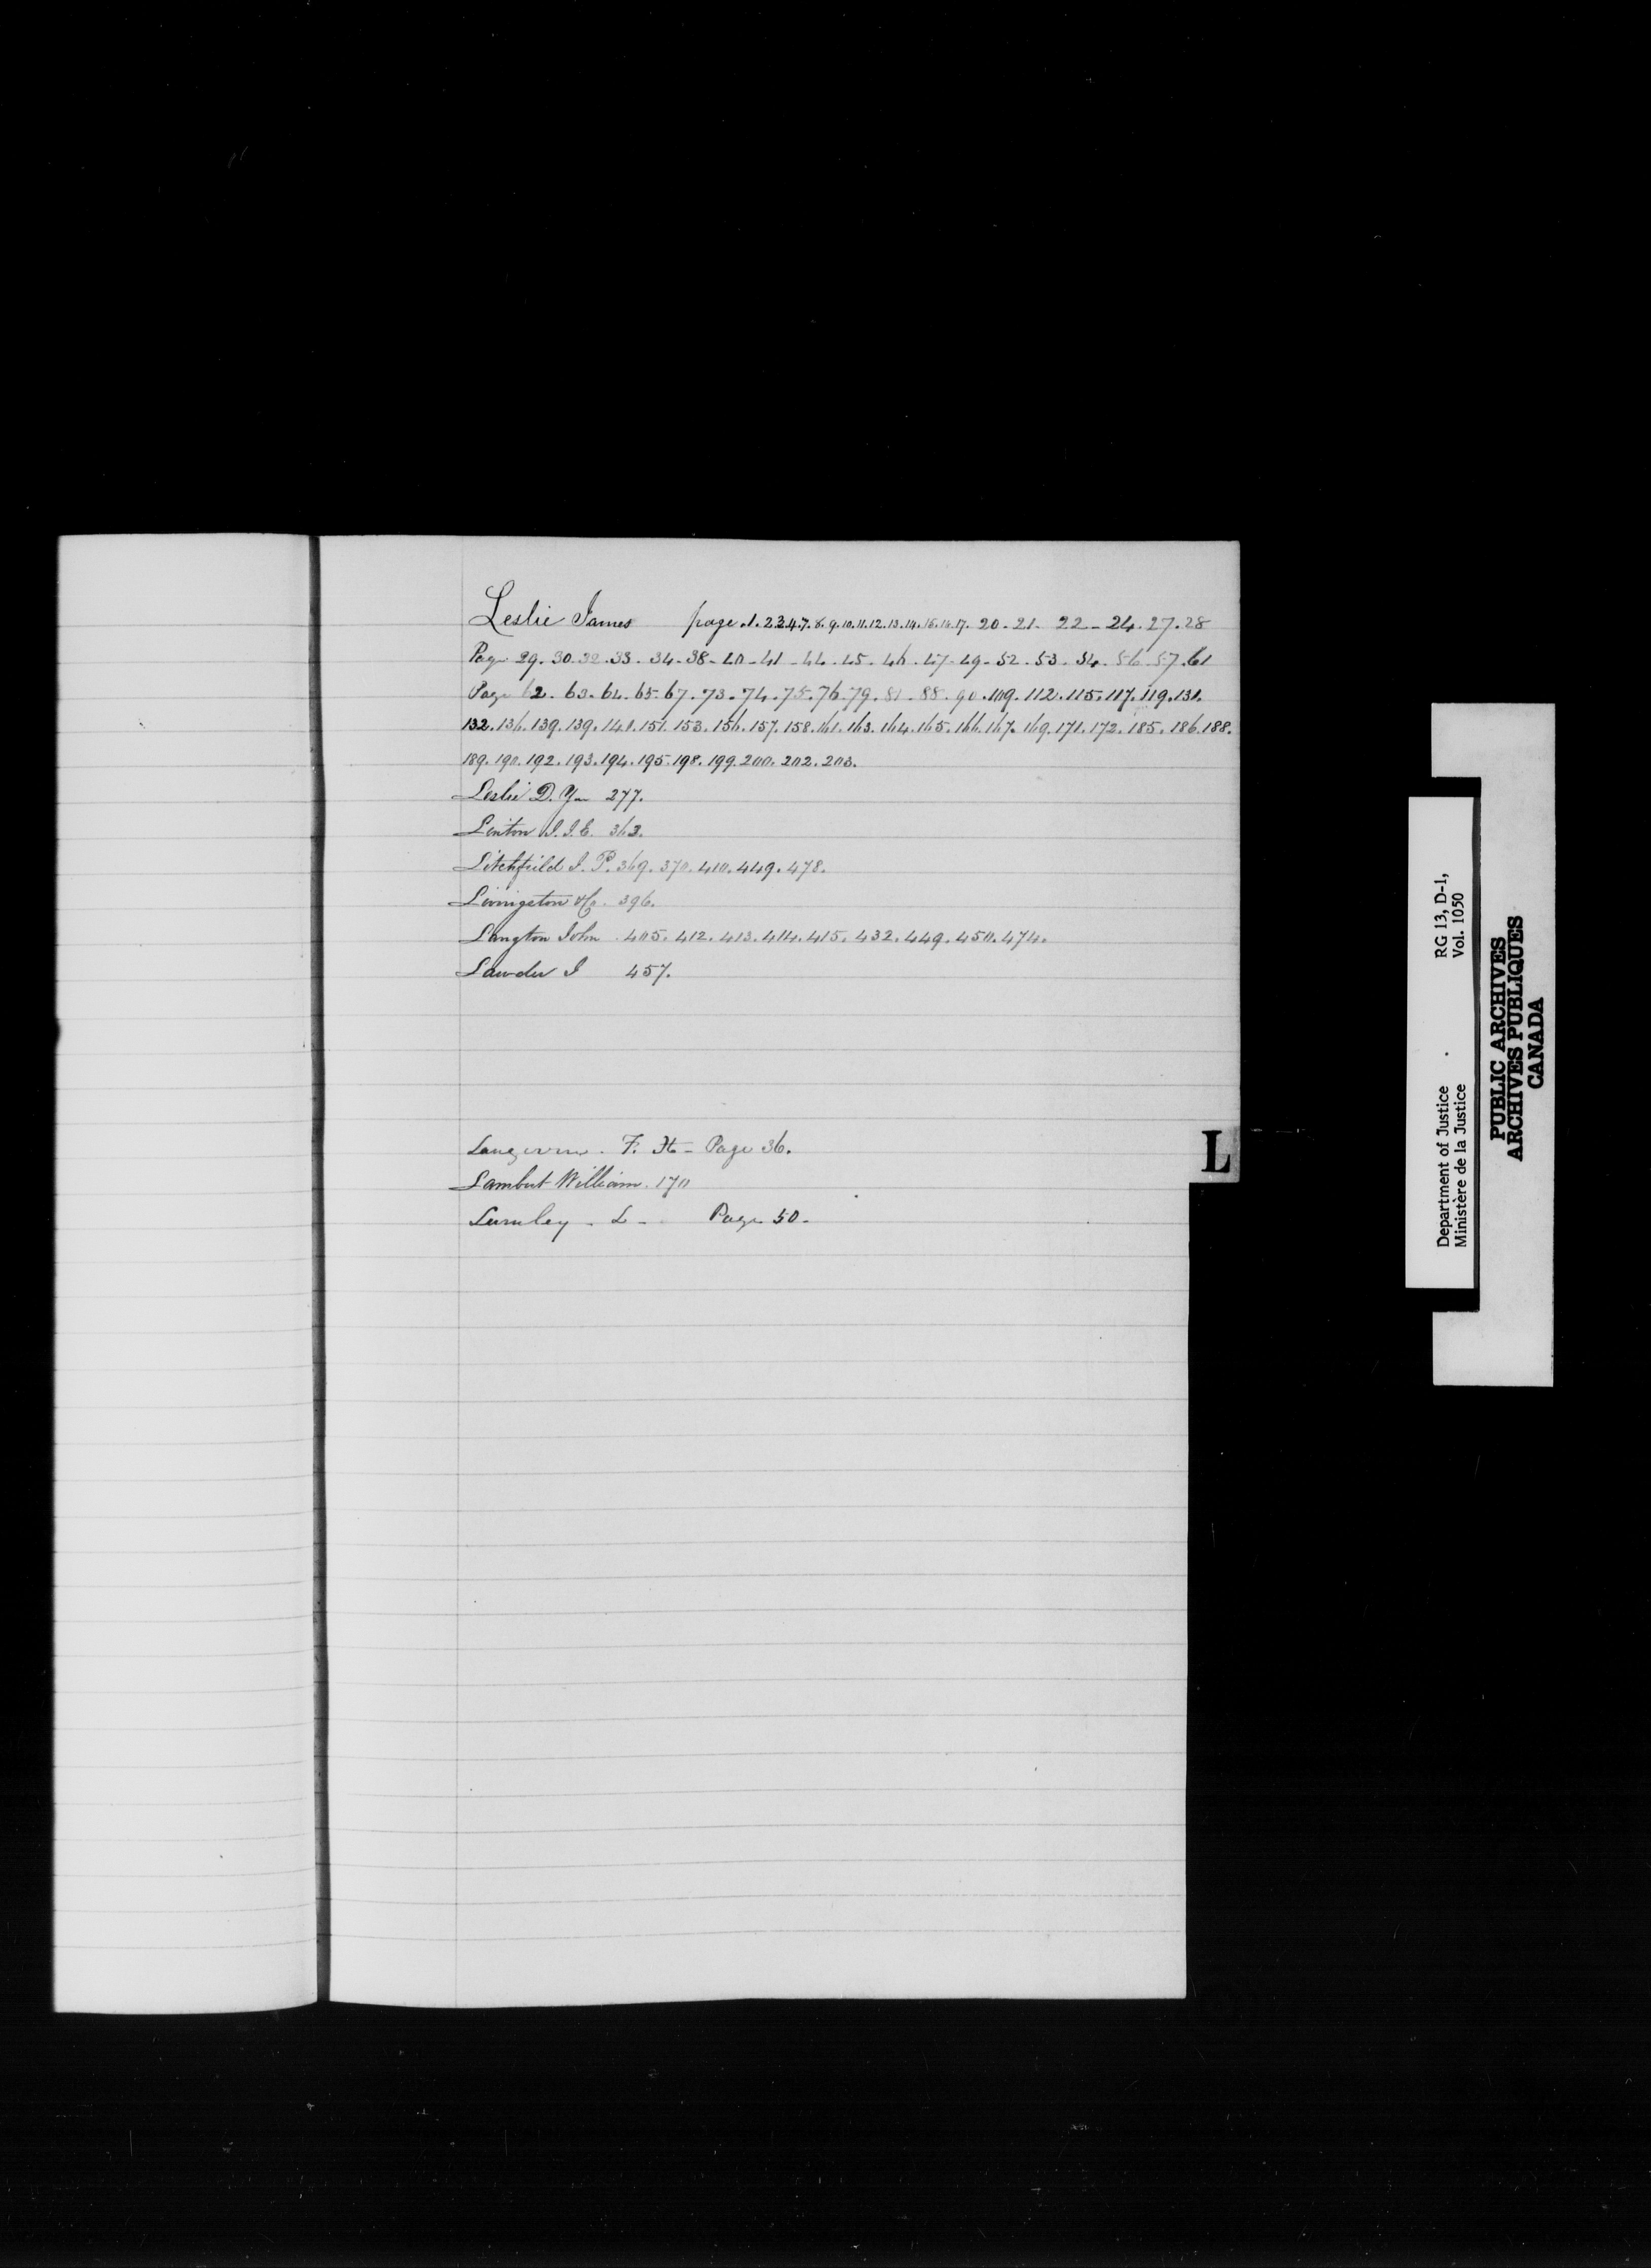 Leslie James page.1.2.3.4.7.8.9.10.11.12.13.14.15.16.17. 20-21- 22-24.27.28
Page 29.30.32.33.34-38-40-41-44.45.46.47-49-52.53.54.56.57.61
Page 62.63.64.65-67.73.74.75.76.79.81.88.90.109.112.115.117.119.131.
132.136.139.139.140.151.153.156.157.158.161.163.164.165.166.167.169.171.172.185.186.188.
189.190.192.193.194.195.198.199.200.202.203.
Leslie D. 277.
Linton J.J.E. 363.
Litchfield J.P. 369.370.410.449.478.
Livingston &Co. 396.
Langton John 405.412.413.414.415.432.449.450.474.
Lawder J 457.
L
Langevin. F. H- Page 36.
Lambert William. 170
Lumley - L - Page 50-
Department of Justice RG 13, D-1,
Ministère de la Justice Vol. 1050
PUBLIC ARCHIVES
ARCHIVES PUBLIQUES
CANADA